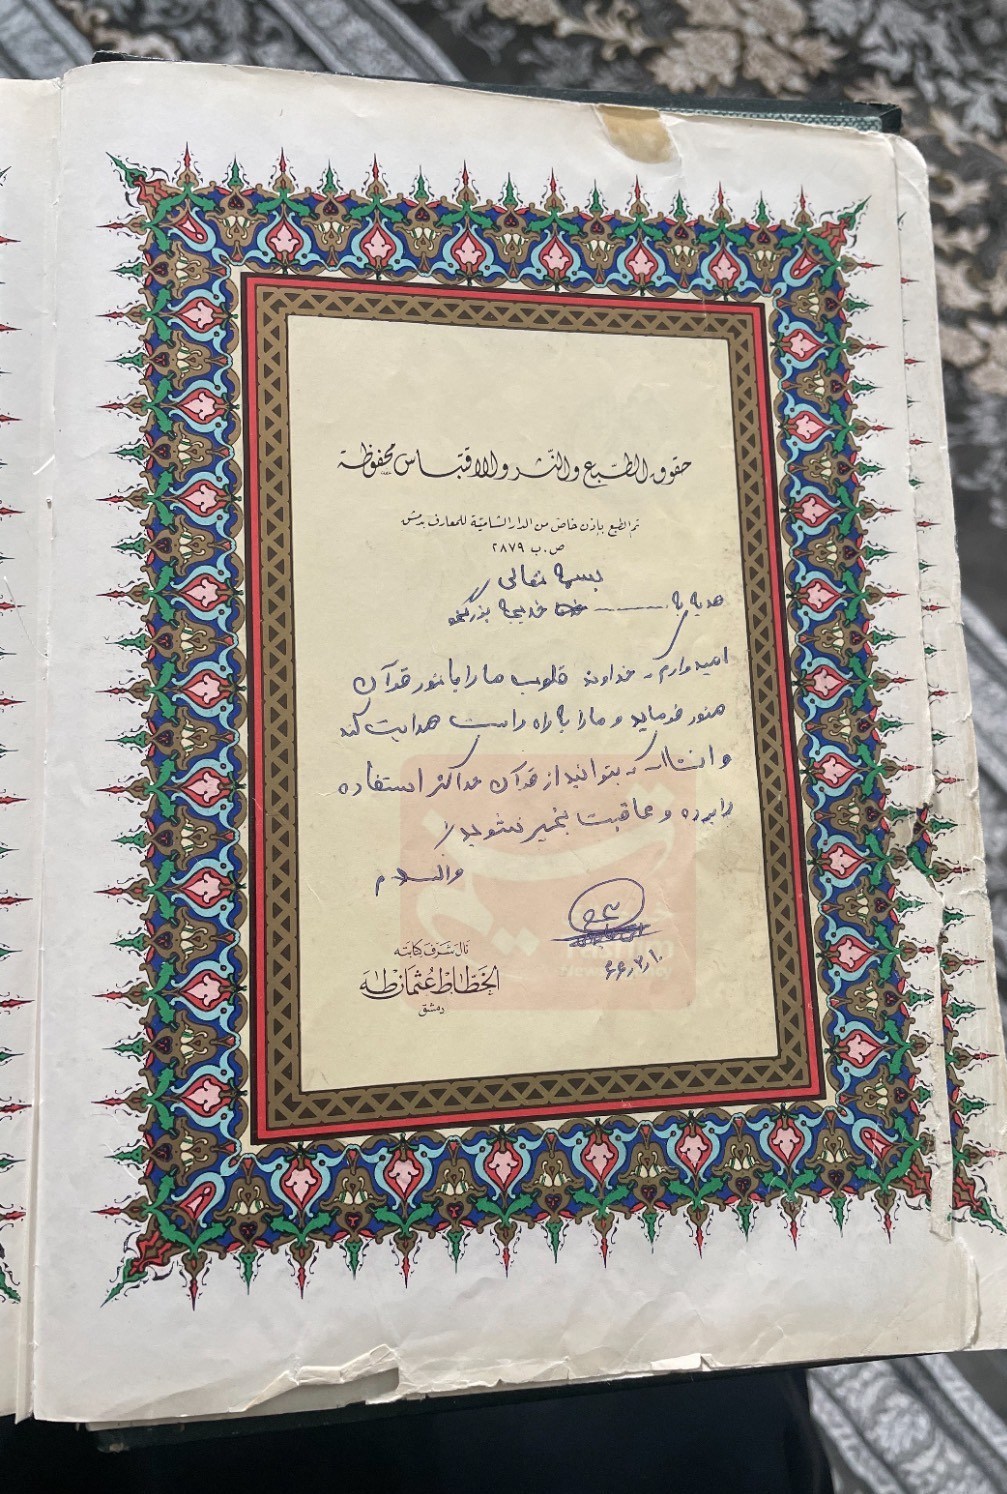 حقوق الطبع والنشر والاقتباس محفوظة
تم الطبع بإذن خاص من الدار الشامية للمعارف بدمشق
ص.ب ٢٨٧٩
بسمه تعالی
هدیه به خدیجه
امیدوارم که خداوند قلوب ما را با نور قرآن
منور فرماید و ما را به راه راست هدایت کند
و انشاالله که بتوانید از قرآن حداکثر استفاده
را برده و عاقبت بخیر شوید
والسلام
۶۶٫۲٫۱۰
نال شرف كتابته
الخطاط عثمان طه
دمشق